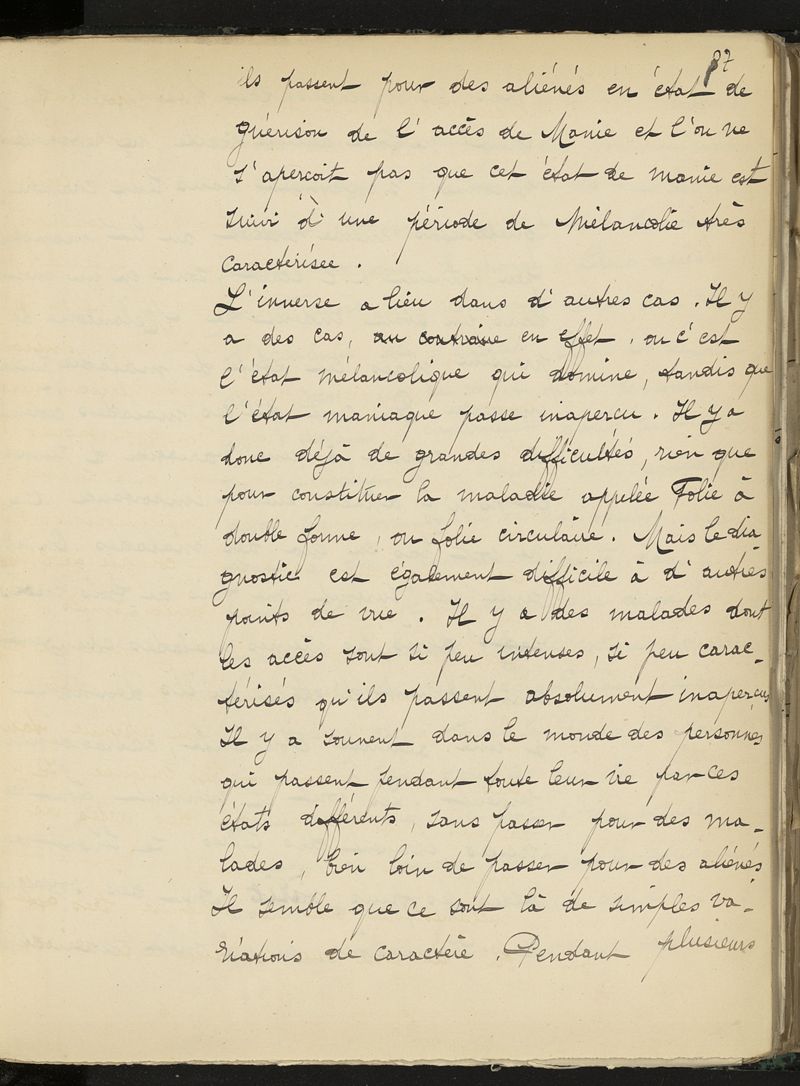 87
ils passent pour des aliénés en état de
guérison de l'accès de Manie et l'on ne
s'apercoit pas que cet état de manie est
suivi d'une période de Mélancolie très
caractérisée.
L'inverse a lieu dans d'autres cas. Il y
a des cas, au contraire en effet, ou c'est
l'état mélancolique qui domine, tandis que
l'état maniaque passe inaperçu. Il y a
donc déjà de grandes difficultés, rien que
pour constituer la maladie appelée Folie à
double forme, ou folie circulaire. Mais le dia
gnostic est également difficile à d'autres
points de vue. Il y a des malades dont
les accès sont si peu intenses, si peu carac-
térisés qu'ils passent absolument inaperçus
Il y a souvent dans le monde des personnes
qui passent pendant toute leur vie par ces
états différents, sans passer pour des ma-
lades, bien loin de passer pour des aliénés
Il semble que ce sont là de simples va-
riations de caractère. Pendant plusieurs